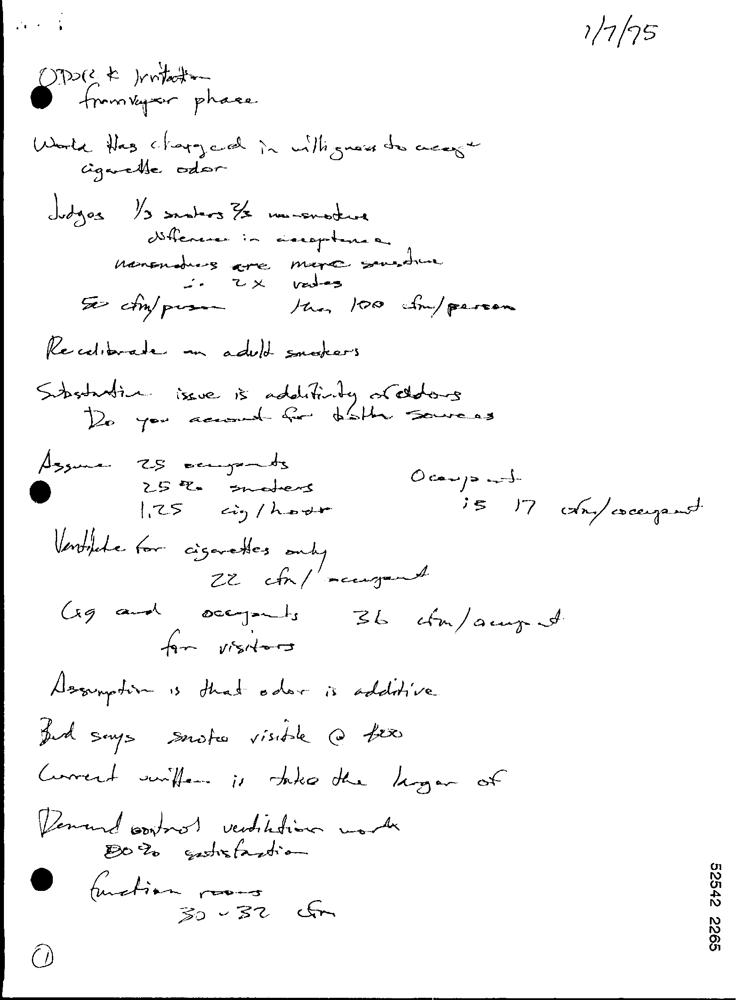 1/7/95
ODOR & Irritation
from vapor phase
World Has changed in willigness to accept
cigarette odor
Judges 1/3 smokers 2/3 nonsmokers
difference in acceptance
nonsmokers are more sensitive
∴ 2X rates
50 cfm/person than 100 cfm/person
Recalibrate on adult smokers
Substantive issue is additivity of odors
Do you account for both sources
Assume 25 occupants
25% smokers
1.25 cig/hour
Occupant
is 17 cfm/occupant
Ventilate for cigarettes only
22 cfm/occupant
Cig and occupants 36 cfm/occupant
for visitors
Assumption is that odor is additive
Bud says smoke visible @
Current written is take the larger of
Demand control ventilation work
80% satisfaction
function rooms
30-32 cfm
1
52542 2265